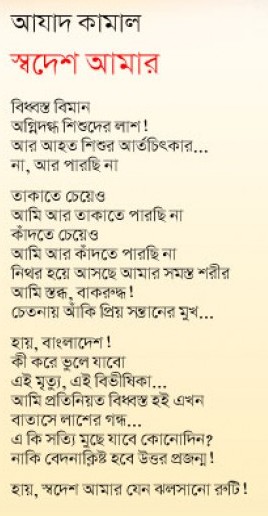 আযাদ কামাল
স্বদেশ আমার
বিধ্বস্ত বিমান
অগ্নিদগ্ধ শিশুদের লাশ!
আর আহত শিশুর আর্তচিৎকার...
না, আর পারছি না
তাকাতে চেয়েও
আমি আর তাকাতে পারছি না
কাঁদতে চেয়েও
আমি আর কাঁদতে পারছি না
নিথর হয়ে আসছে আমার সমস্ত শরীর
আমি স্তব্ধ, বাকরুদ্ধ!
চেতনায় আঁকি প্রিয় সন্তানের মুখ...
হায়, বাংলাদেশ!
কী করে ভুলে যাবো
এই মৃত্যু, এই বিভীষিকা...
আমি প্রতিনিয়ত বিধ্বস্ত হই এখন
বাতাসে লাশের গন্ধ...
এ কি সত্যি মুছে যাবে কোনোদিন?
নাকি বেদনাক্লিষ্ট হবে উত্তর প্রজন্ম!
হায়, স্বদেশ আমার যেন ঝলসানো রুটি!